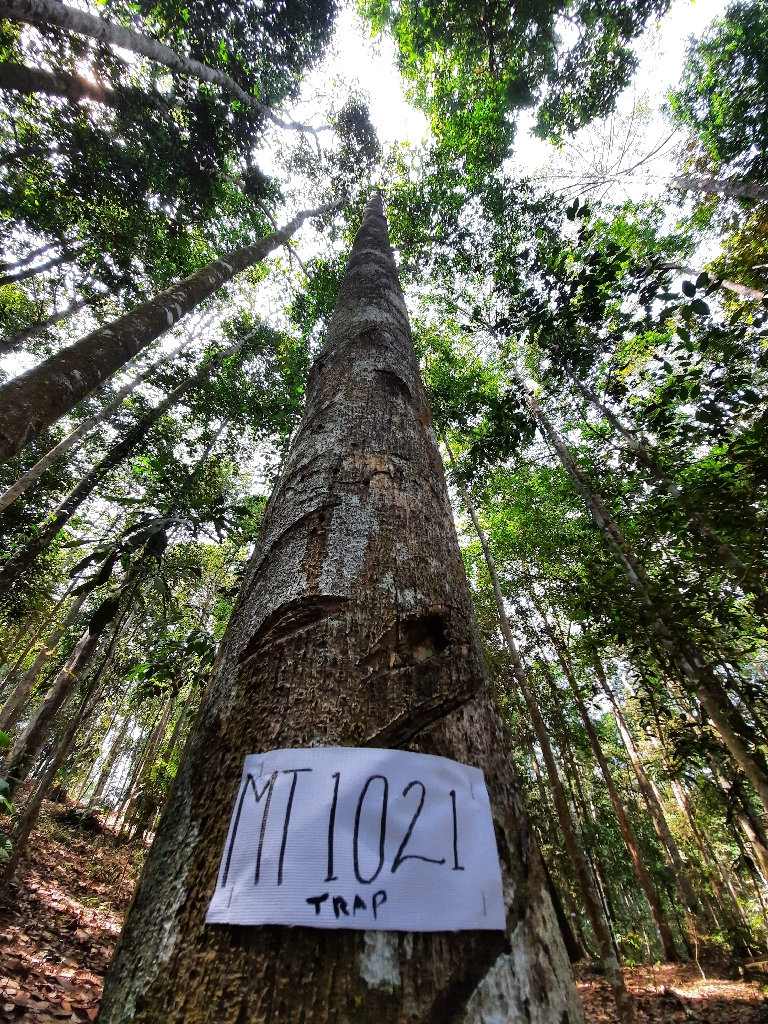 MT 1021
TRAP